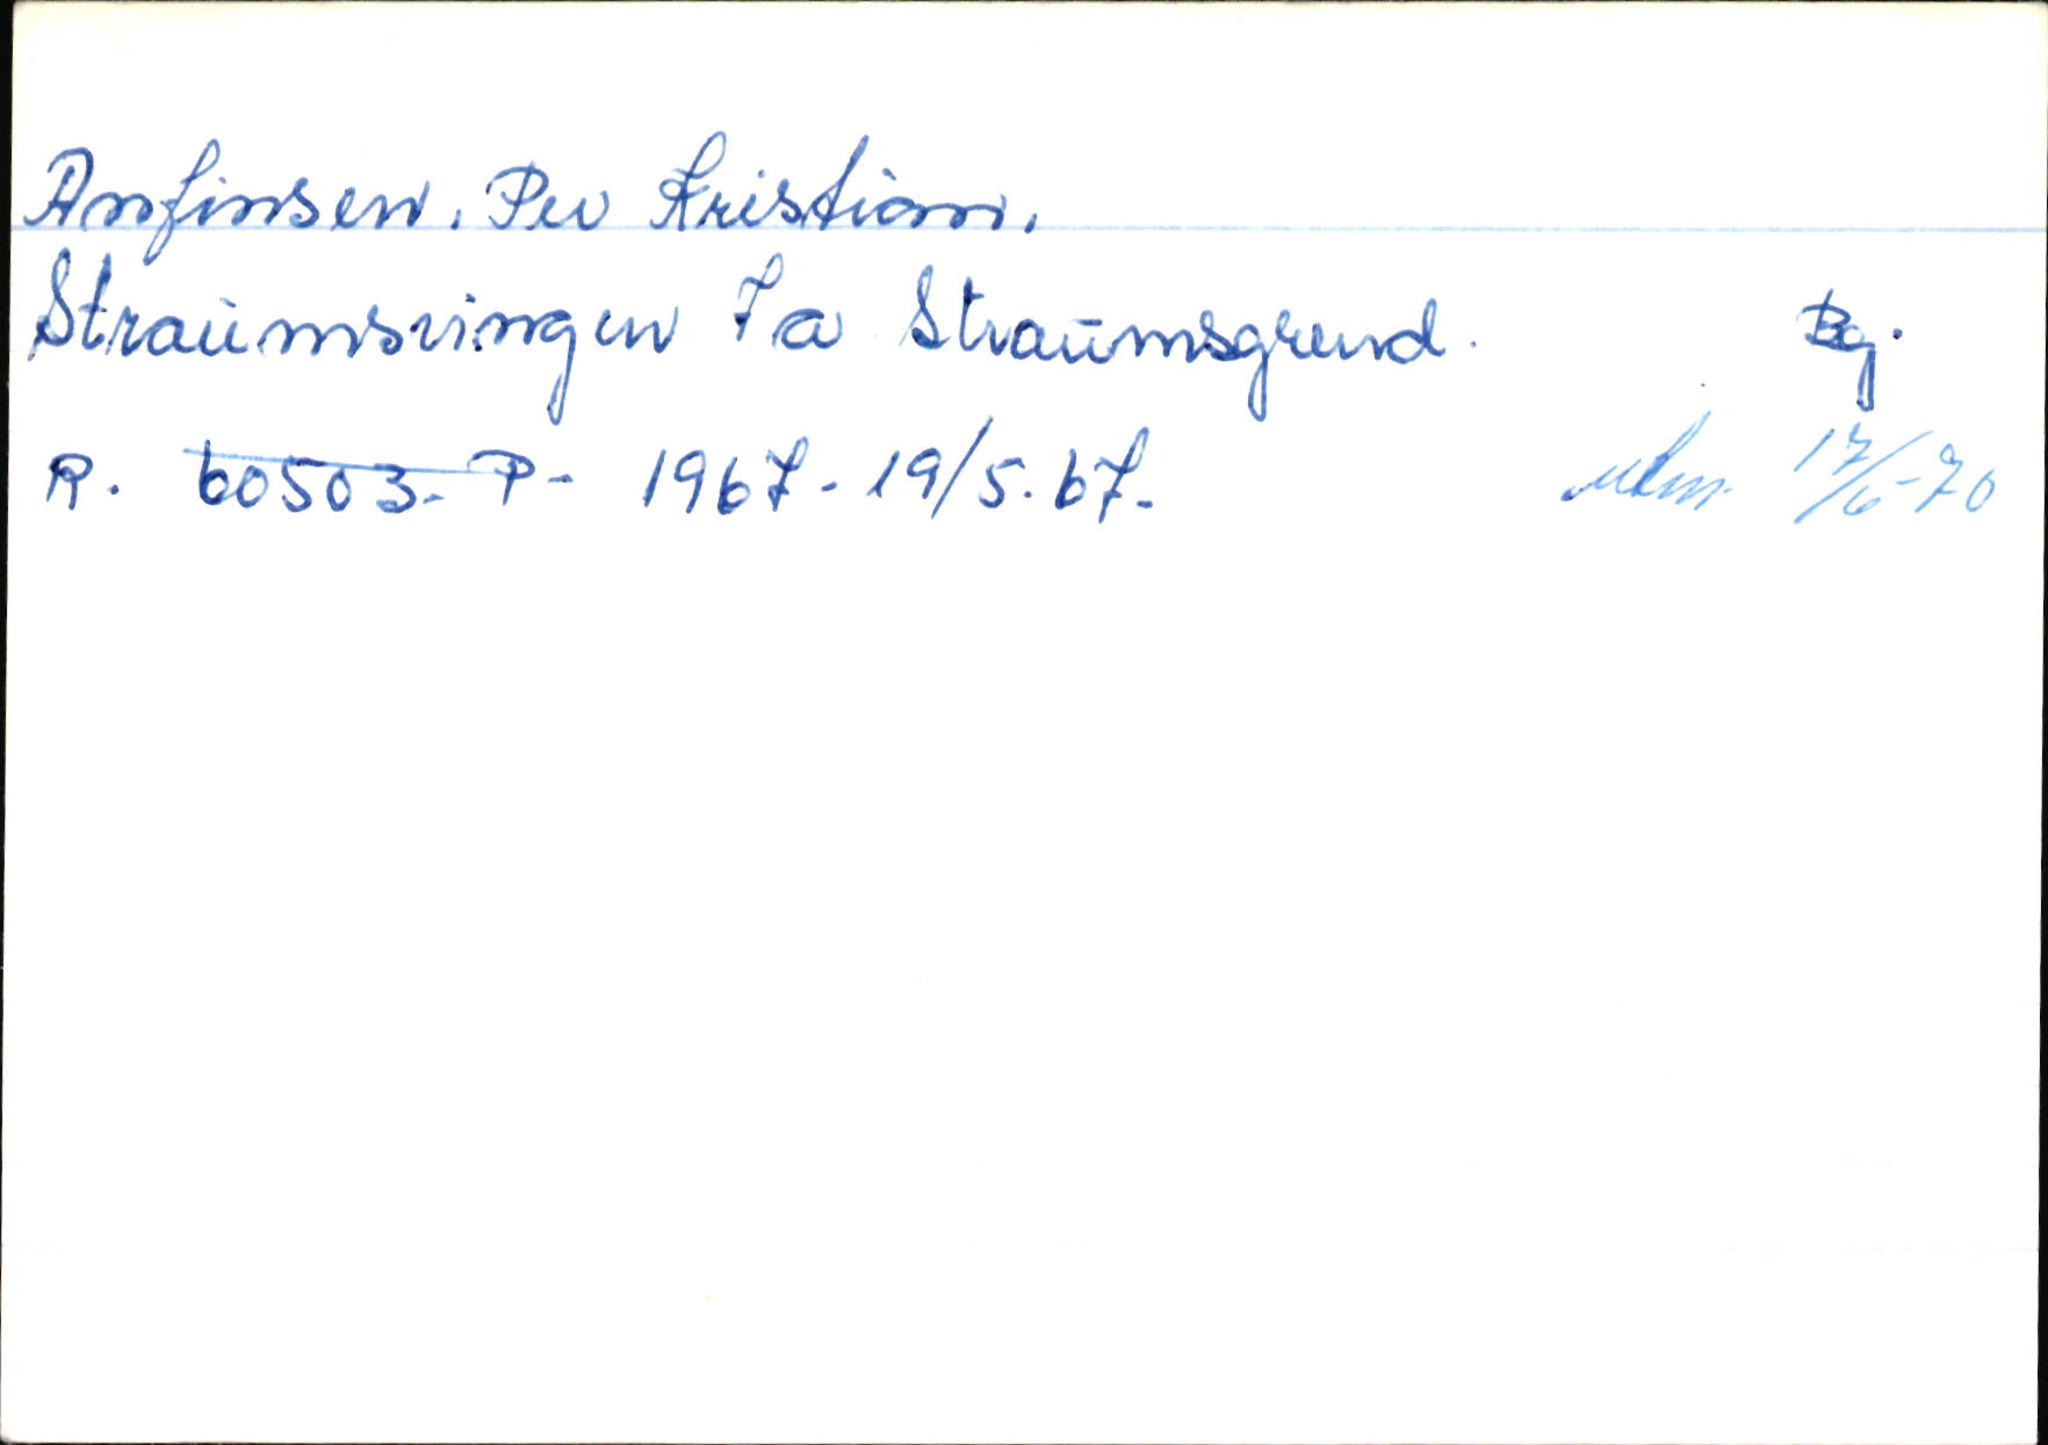 Anfinsen. Per Kristian.
Straumsvingen 7a Straumsgrend. Bg.
R. 60503. P- 1967. 19/5.67. 17/6-70